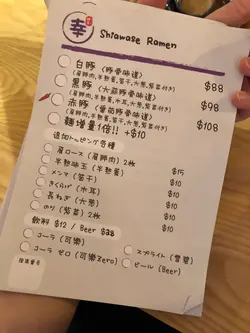 幸
Shiawase Ramen
白豚 (豚骨味道) $88
(肩脢肉,半熟蛋,筍干,大葱,紫菜付き)
黒豚 (大蒜豚骨味道) $98
(肩脢肉,半熟蛋,木耳,大葱,紫菜付き)
赤豚 (蕃茄豚骨味道) $108
(肩脢肉,半熟蛋,筍干,大葱,紫菜付き)
麵增量1倍!! +$10
追加トッピング各種
肩ロース (肩脢肉) 2枚 $15
半熟味玉 (半熟蛋) $10
メンマ (筍干) $10
きくらげ (木耳) $10
長ねぎ (大葱) $10
のり (紫菜) 2枚 $10
飲料 $12 / Beer $38
コーラ (可樂)
スプライト (雪碧)
コーラ ゼロ (可樂Zero)
ビール (Beer)